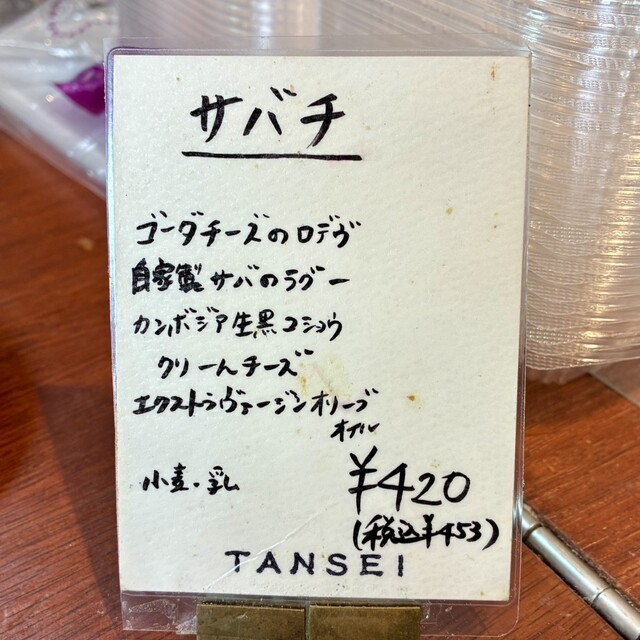 サバチ
ゴーダチーズのロデヴ
自家製サバのラグー
カンボジア生黒コショウ
クリームチーズ
エクストラヴァージンオリーブ
オイル
小麦・乳
¥420
(税込¥453)
TANSEI